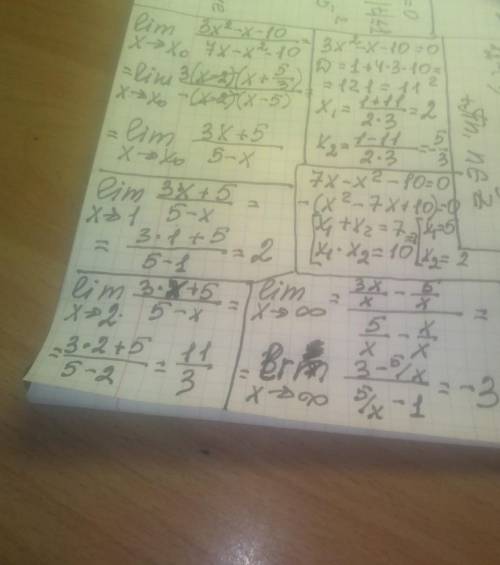 lim x→x₀ (3x²-x-10)/(7x-x²-10) =
= lim x→x₀ 3(x-2)(x+5/3)/(-(x-2)(x-5)) =
= lim x→x₀ (3x+5)/(5-x)
3x²-x-10=0
D=1+4·3·10=
=121=11²
x₁=(1+11)/(2·3)=2
x₂=(1-11)/(2·3)=-5/3
lim x→1 (3x+5)/(5-x) =
= (3·1+5)/(5-1) = 2
7x-x²-10=0
-(x²-7x+10)=0
[x₁+x₂=7 [x₁=5
[x₁·x₂=10 [x₂=2
lim x→2 (3·x+5)/(5-x) =
= (3·2+5)/(5-2) = 11/3
lim x→∞ = (3x/x - 5/x)/(5/x - x/x) =
= lim x→∞ (3-5/x)/(5/x-1) = -3